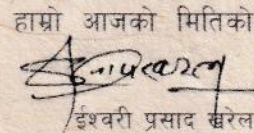 हाम्रो आजको मितिको
ईश्वरी प्रसाद खरेल